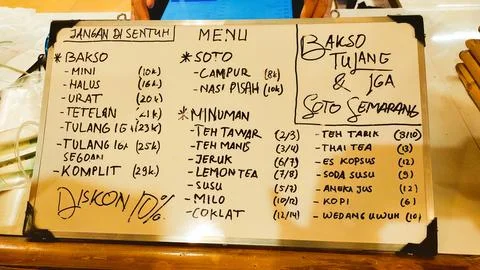 JANGAN DI SENTUH
MENU
BAKSO
TULANG
& IGA
SOTO SEMARANG
* BAKSO
- MINI (10K)
- HALUS (16K)
- URAT (20K)
- TETELAN (21K)
- TULANG IGA (23K)
- TULANG IGA (25K)
SEGDAN
- KOMPLIT (29K)
DISKON 10%
* SOTO
- CAMPUR (8K)
- NASI PISAH (10K)
* MINUMAN
- TEH TAWAR (2/3)
- TEH MANIS (3/4)
- JERUK (6/7)
- LEMON TEA (7/8)
- SUSU (5/7)
- MILO (10/12)
- COKLAT (12/14)
- TEH TARIK (8/10)
- THAI TEA (13)
- ES KOPSUS (12)
- SODA SUSU (9)
- ANEKA JUS (12)
- KOPI (6)
- WEDANG UWUH (10)